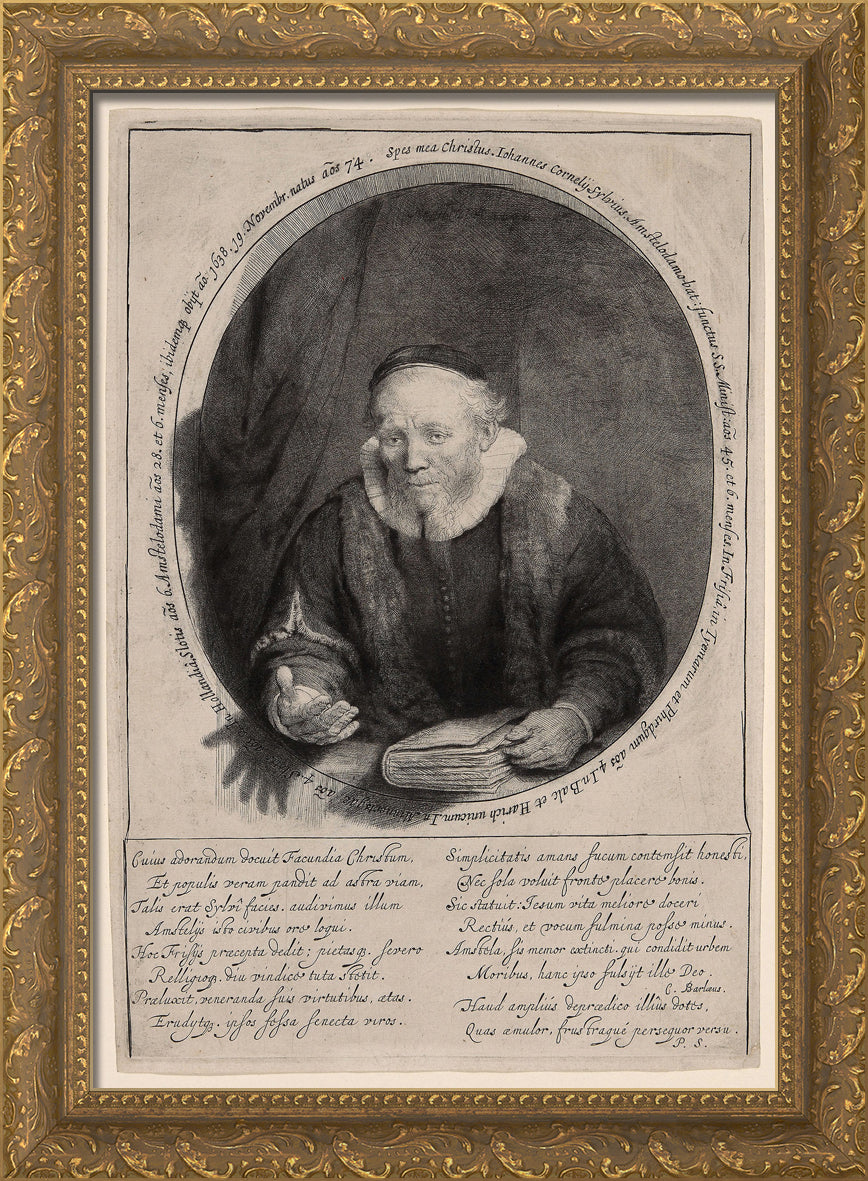 Spes mea Christus. Iohannes Cornelij Sylvius, Amstelodamo-bat: functus S.S. Minist: aōs 45. et 6. menses. In Frisia in Tyemarum et Phirdgum aōs 4. In Balc et Harich unicum. In aōs 4. in Hollandiæ Slotis aōs 6. Amstelodami aōs 28. et 6. menses, ibidemq obijt aō. 1638. 19. Novembr. natus aōs 74.
Cuius adorandum docuit Facundia Christum,
Et populis veram pandit ad astra viam,
Talis erat Sylvî facies. audivimus illum
Amstelijs isto civibus ore loqui.
Hoc Frisijs præcepta dedit; pietasq. severo
Relligioq. diu vindice tuta stetit.
Præluxit, veneranda suis virtutibus, ætas.
Erudytq. ipsos fessa senecta viros.
Simplicitatis amans fucum contemsit honesti,
Nec sola voluit fronte placere bonis.
Sic statuit: Iesum vita meliore doceri
Rectiùs, et vocum fulmina posse minus.
Amstela, sis memor extincti, qui condidit urbem
Moribus, hanc ipso fulsijt ille Deo.
C. Barlæus.
Haud ampliùs deprædico illîus dotes,
Quas æmulor, frustraque persequor versu.
P. S.